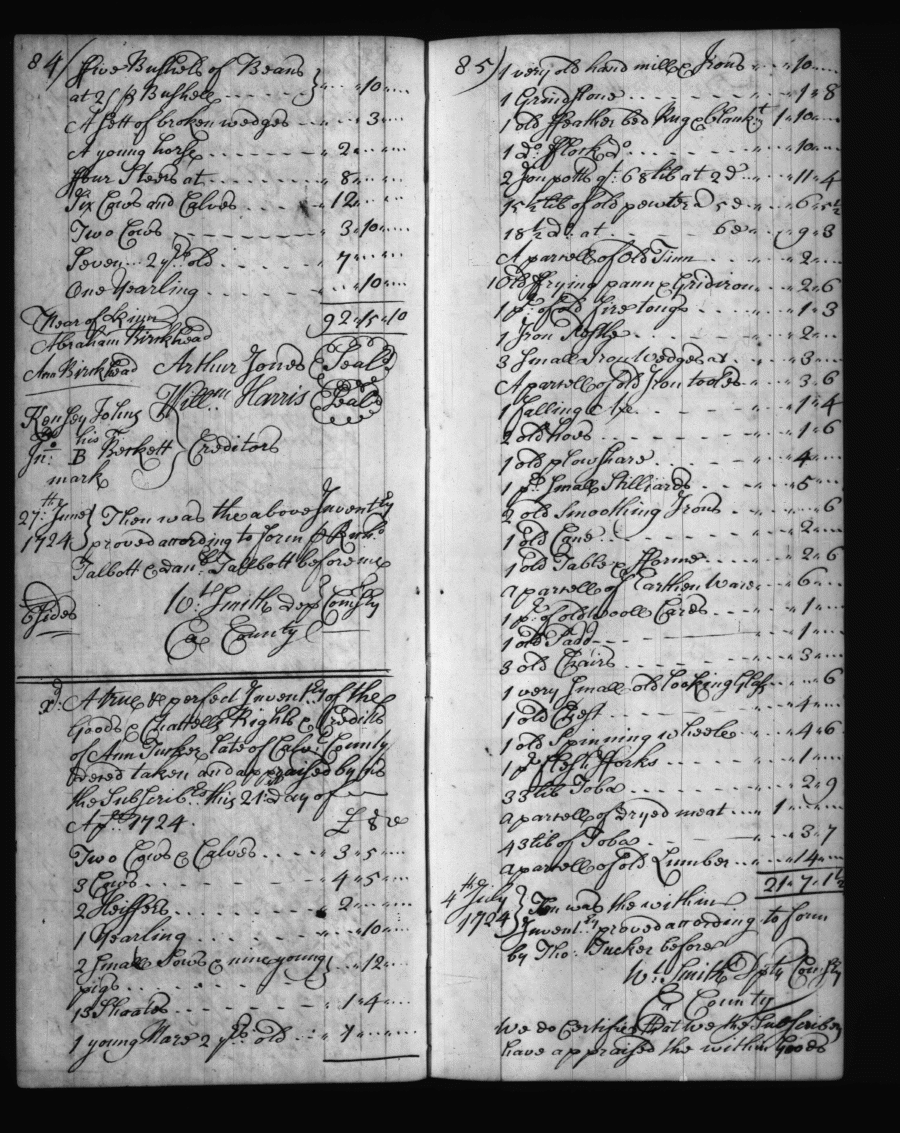 84)
ffive Bushels of Beans
at 2/ ⅌ Bushell - - - - - } " " 10 " "
A Sett of broken wedges - - - " " 3 " "
A young horse - - - - - " 2 " " "
ffour Steers at - - - - " 8 " " "
Six Cows and Calves - - - - " 12 " "
Two Cows - - - - - " 3 " 10 " "
Seven - - 2 yrs old - - - - " 7 " " "
One Yearling - - - - - " " 10 " "
Near of Kinn 92 " 15 " 10
Abraham Birckhead
Ann Birckhead Arthur Jones (Seal)
Willm Harris (Seal)
Kensey Johns
his
Jno: B Beckett } Creditors
mark
27th June } Then was the above Inventry
1724 } proved according to form ⅌ Richd
Talbott & danll Tallbott before me
6 Sides Wm Smith dep Comsry
Ca County
xd: A true & perfect Inventry of the
Goods & Chattells Rights & Credits
of Ann Tucker Late of Calvt County
taken and appraised by us
the Subscribers this 21st day of
Aprll 1724. £ s d
Two Cows & Calves - - - - " 3 " 5 " "
3 Cows - - - - - " 4 " 5 " "
2 Heiffers - - - - - " 2 " " "
1 Yearling - - - - - " " 10 " "
2 Small Sows & nine young } " " 12 " "
pigs - - - - -
13 Shoates - - - - - " 1 " 4 " "
1 young Mare 2 yrs old - - - " 1 " " "
85)
1 very old hand mill & Irons - - " " 10 " "
1 Grindstone - - - - - " " 1 " 8
1 old ffeather bed Rug & blankt 1 " 10 " "
1 do. fflock do - - - - " " 10 " "
2 Iron potts qt. 68 lb at 2d - " " 11 " 4
15½ lb of old pewter a 5d - " " 6 " 5½
18½ do. at - - - 6d " " 9 " 3
A parcell of Old Tinn - - - " " 2 " "
1 Old ffrying pann & Gridiron - " " 2 " 6
1 pr. of old fire tongs - - - " " 1 " 3
1 Iron - - - - " " 2 " "
3 Small Iron Wedges at - - " " 3 " "
A parcell of old Iron tooles - " " 3 " 6
1 falling Axe - - - " " 1 " 4
2 old hoes - - - - " " 1 " 6
1 old plow share - - - - " " 4 " "
1 pr. Small Stilliards - - - " " 5 " "
2 old Smoothing Irons - - " " " 6
1 old Cane - - - - - " " 2 " "
1 old Table & fforme - - - " " 2 " 6
a parcell of Earthen Ware - " " 6 " "
1 pr. of old wooll Cards - - " " 1 " "
1 old - - - - " " 1 " "
3 old Chairs - - - - " " 3 " "
1 very Small old looking glass - " " " 6
1 old Chest - - - - " " 4 " "
1 old Spinning wheele - - " " 4 " 6
1 pr fflesh fforks - - - " " 1 " "
33 lb Toba - - - - " " 2 " 9
a parcell of dryed meat - - 1 " " "
43 lb of Toba - - - - " " 3 " 7
a parcell of old Lumber - - " " 14 " "
21 " 7 " 1½
4th July } Then was the within
1724 } Inventry proved according to form
by Tho: Tucker before
Wm. Smith Dpty Comsry
Ca County
We do Certifie that we the Subscribers
have appraised the within goods